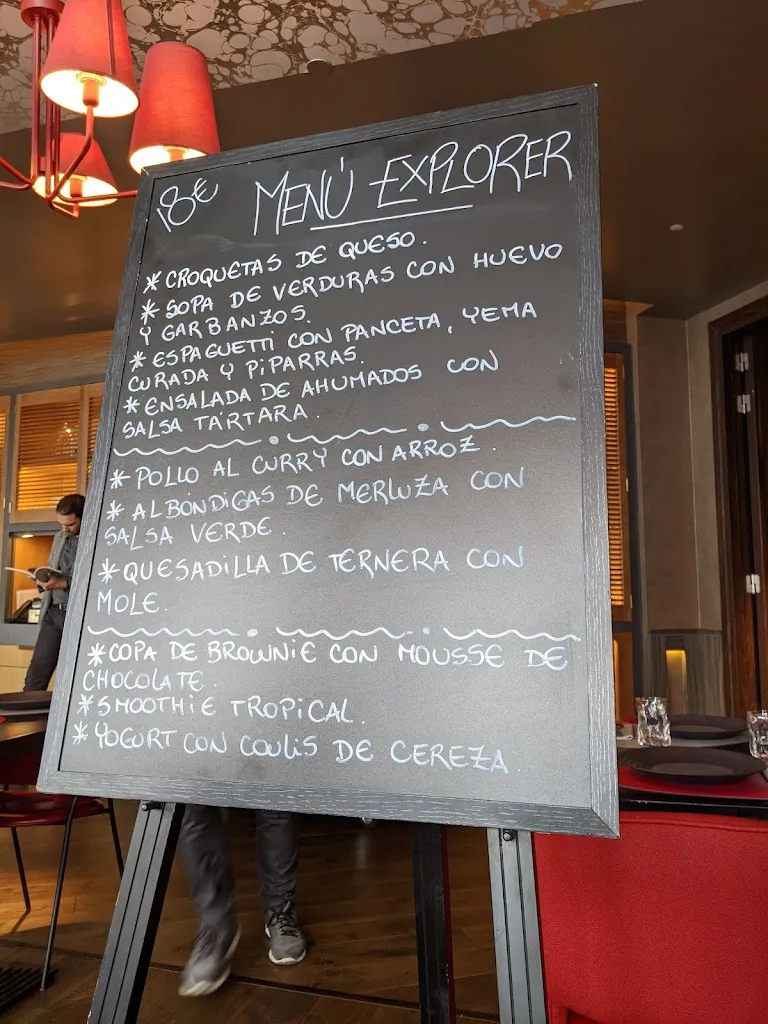 18€ MENÚ EXPLORER
* CROQUETAS DE QUESO.
* SOPA DE VERDURAS CON HUEVO
Y GARBANZOS.
* ESPAGUETTI CON PANCETA, YEMA
CURADA Y PIPARRAS.
* ENSALADA DE AHUMADOS CON
SALSA TÁRTARA.
* POLLO AL CURRY CON ARROZ.
* ALBÓNDIGAS DE MERLUZA CON
SALSA VERDE.
* QUESADILLA DE TERNERA CON
MOLE.
* COPA DE BROWNIE CON MOUSSE DE
CHOCOLATE.
* SMOOTHIE TROPICAL.
* YOGURT CON COULIS DE CEREZA.